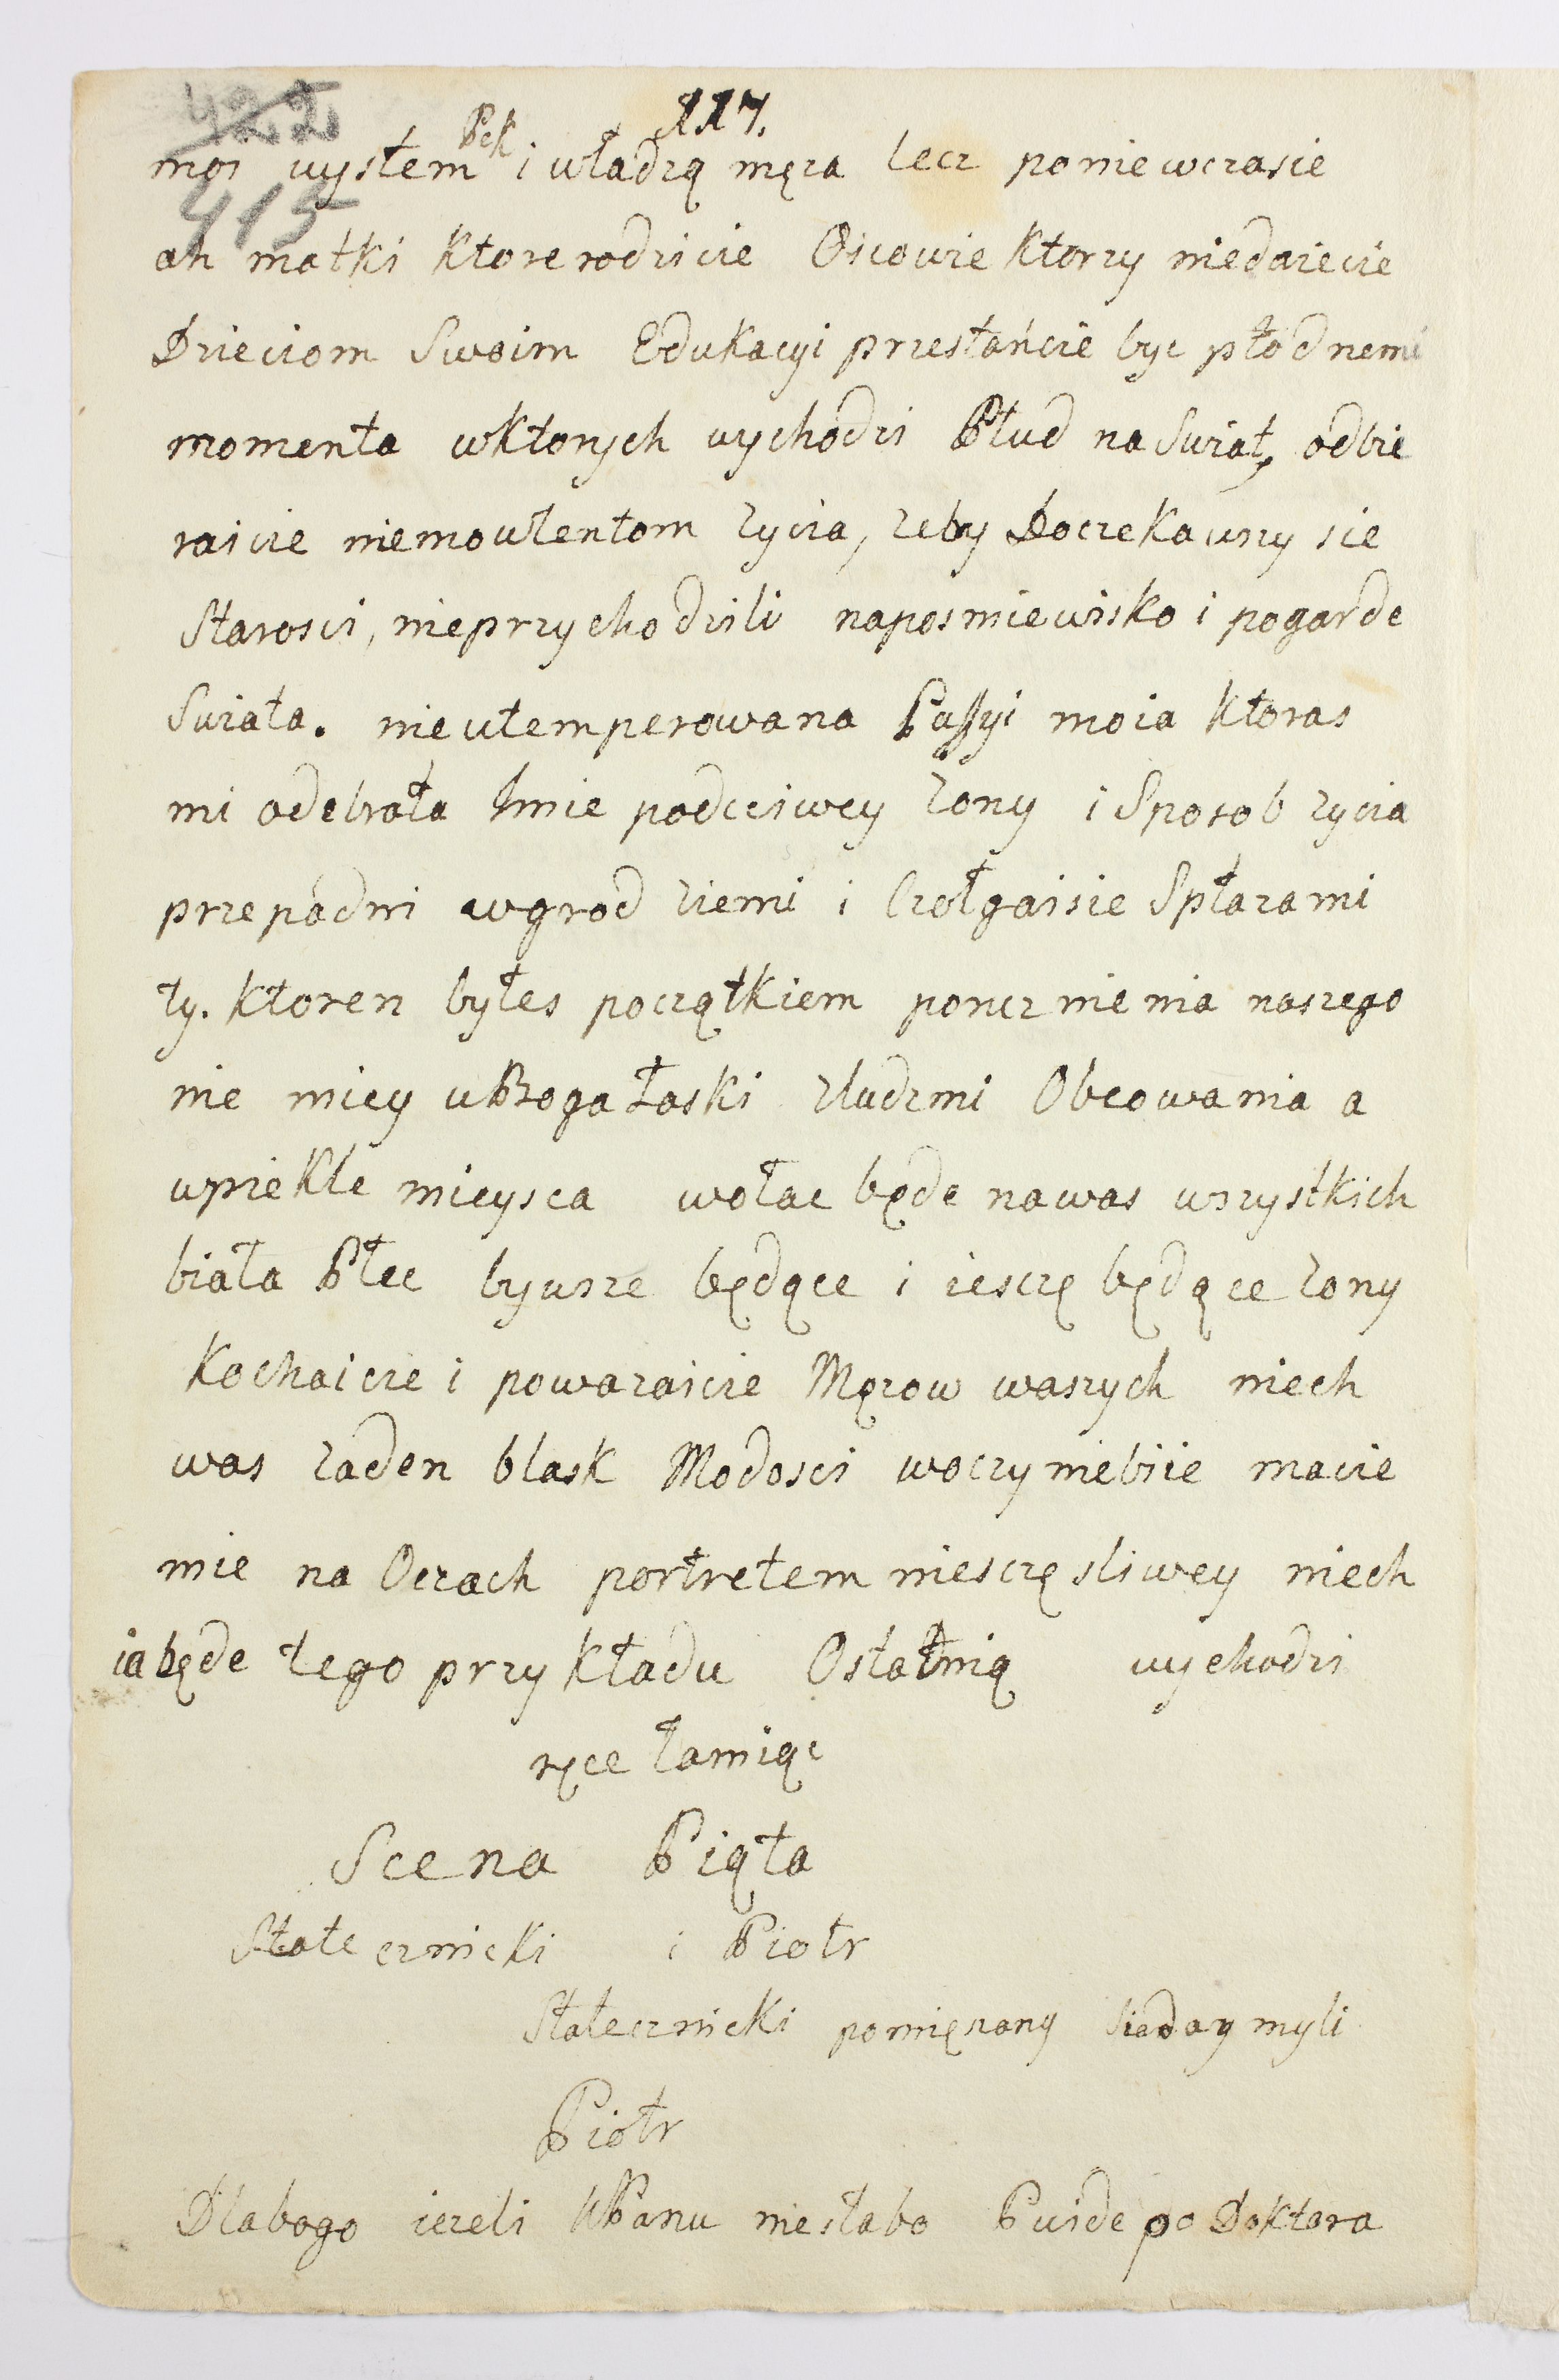 422
117.
415
moi wystem Pek i władzą męza lecz poniewczasie
ah matki ktore rodzicie Oicowie ktorzy niedaiecie
Dzieciom Swoim Edukacyi przestańcie byc płodnemi
momenta wktorych wychodzi Płud na Swiat, odbie
raicie niemowlentom zycia, zeby Doczekawszy sie
Starosci, nieprzychodzili naposmiewisko i pogarde
Swiata. nieutemperowana Passyi moia ktoras
mi odebrała Imie podcciwey zony i Sposob zycia
przepadni wgrod ziemi i Czołgaisie Spłazami
ty. ktoren byłes początkiem poncznienia naszego
nie miey uBoga Łaski zludzmi Obcowania a
wpiekle mieysca wołac będe nawas wszystkich
biała Płec bywsze będące i iesczę będące zony
Kochaicie i powazaicie Męzow waszych niech
was zaden blask Modosci woczy niebiie macie
mie na Oczach portretem niesczęsliwey niech
ia będe tego przykładu Ostatnią wychodzi
ręce łamiąc
Scena Piąta
Statecznicki i Piotr
Statecznicki pomięszany Siada y mysli
Piotr
Dlaboga iezeli WPanu niesłabo Puide po Doktora